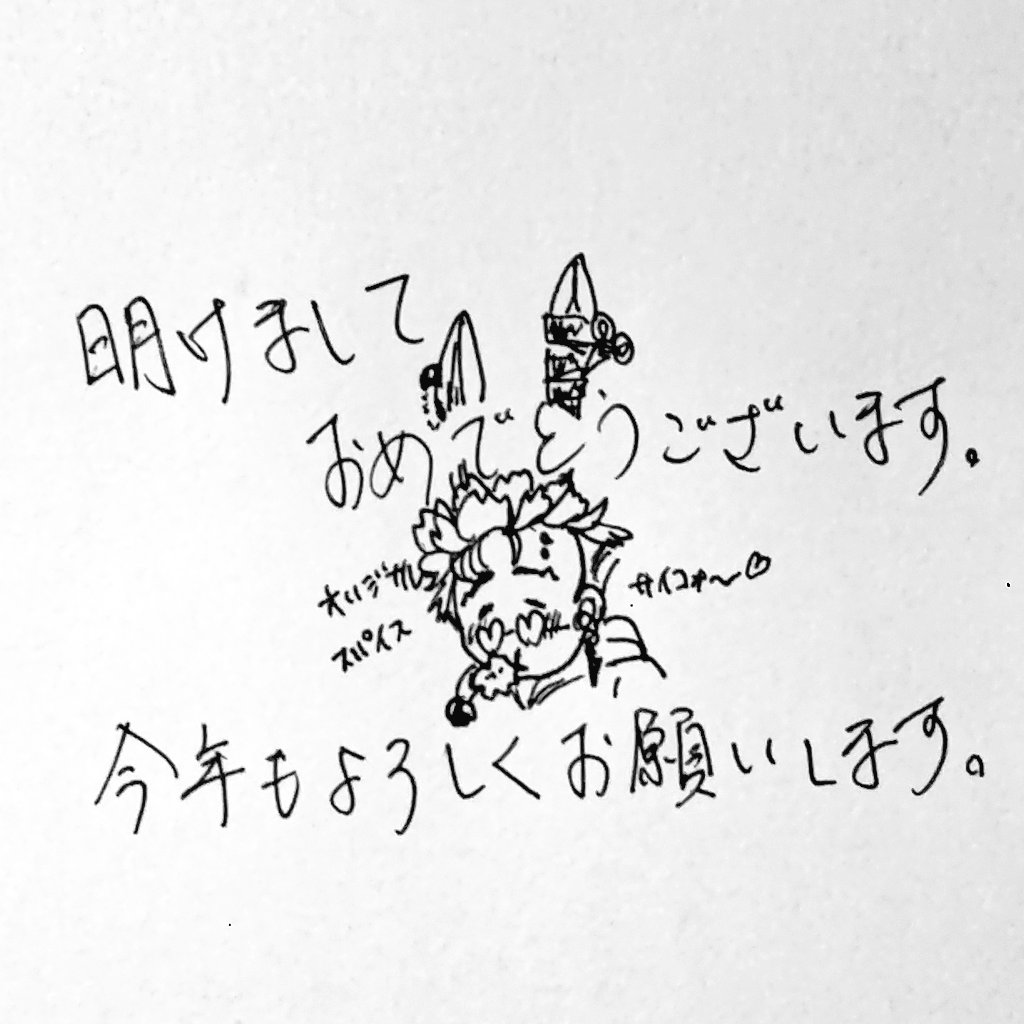 明けまして
おめでとうございます。
オリジナル
スパイス
サイコォ〜♡
今年もよろしくお願いします。